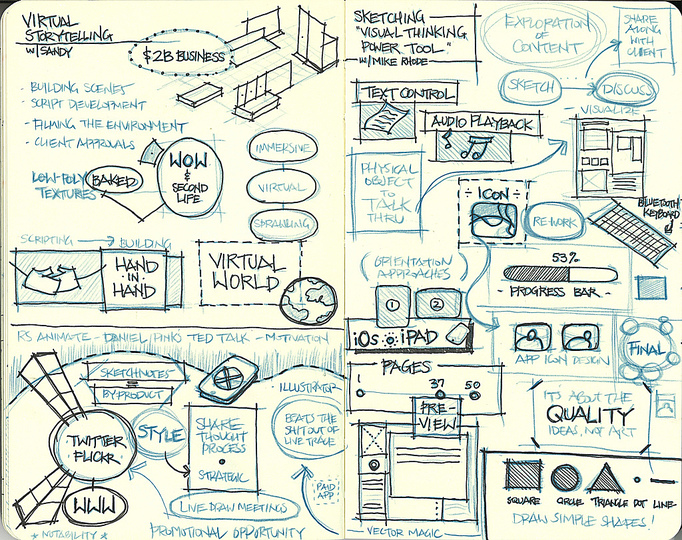 VIRTUAL
STORYTELLING
w/SANDY
$2B BUSINESS
- BUILDING SCENES
- SCRIPT DEVELOPMENT
- FILMING THE ENVIRONMENT
- CLIENT APPROVALS
LOW-POLY BAKED
TEXTURES
WOW
&
SECOND
LIFE
IMMERSIVE
VIRTUAL
SPRAWLING
SCRIPTING → BUILDING
HAND
- IN -
HAND
VIRTUAL
WORLD
RS ANIMATE - DANIEL PINK'S TED TALK - MOTIVATION
SKETCHNOTES
BY-PRODUCT
TWITTER
FLICKR
WWW
* NOTABILITY *
STYLE
SHARE
THOUGHT
PROCESS
STRATEGIC
LIVE DRAW MEETINGS
PROMOTIONAL OPPORTUNITY
ILLUSTRATOR
BEATS THE
SHIT OUT OF
LIVE TRACE
PAID
APP
SKETCHING
"VISUAL THINKING
POWER TOOL"
w/MIKE RHODE
EXPLORATION
OF
CONTENT
SHARE
ALONG
WITH
CLIENT
SKETCH
DISCUSS
- VISUALIZE -
TEXT CONTROL
AUDIO PLAYBACK
PHYSICAL
OBJECT
TO
TALK
THRU
ICON
RE-WORK
BLUETOOTH
KEYBOARD
53%
- PROGRESS BAR -
(ORIENTATION
APPROACHES)
1
2
iOS iPAD
APP ICON DESIGN
FINAL
PAGES
1
37
50
PRE-
VIEW
- VECTOR MAGIC -
IT'S ABOUT THE
QUALITY
IDEAS, NOT ART
SQUARE CIRCLE TRIANGLE DOT LINE
DRAW SIMPLE SHAPES!